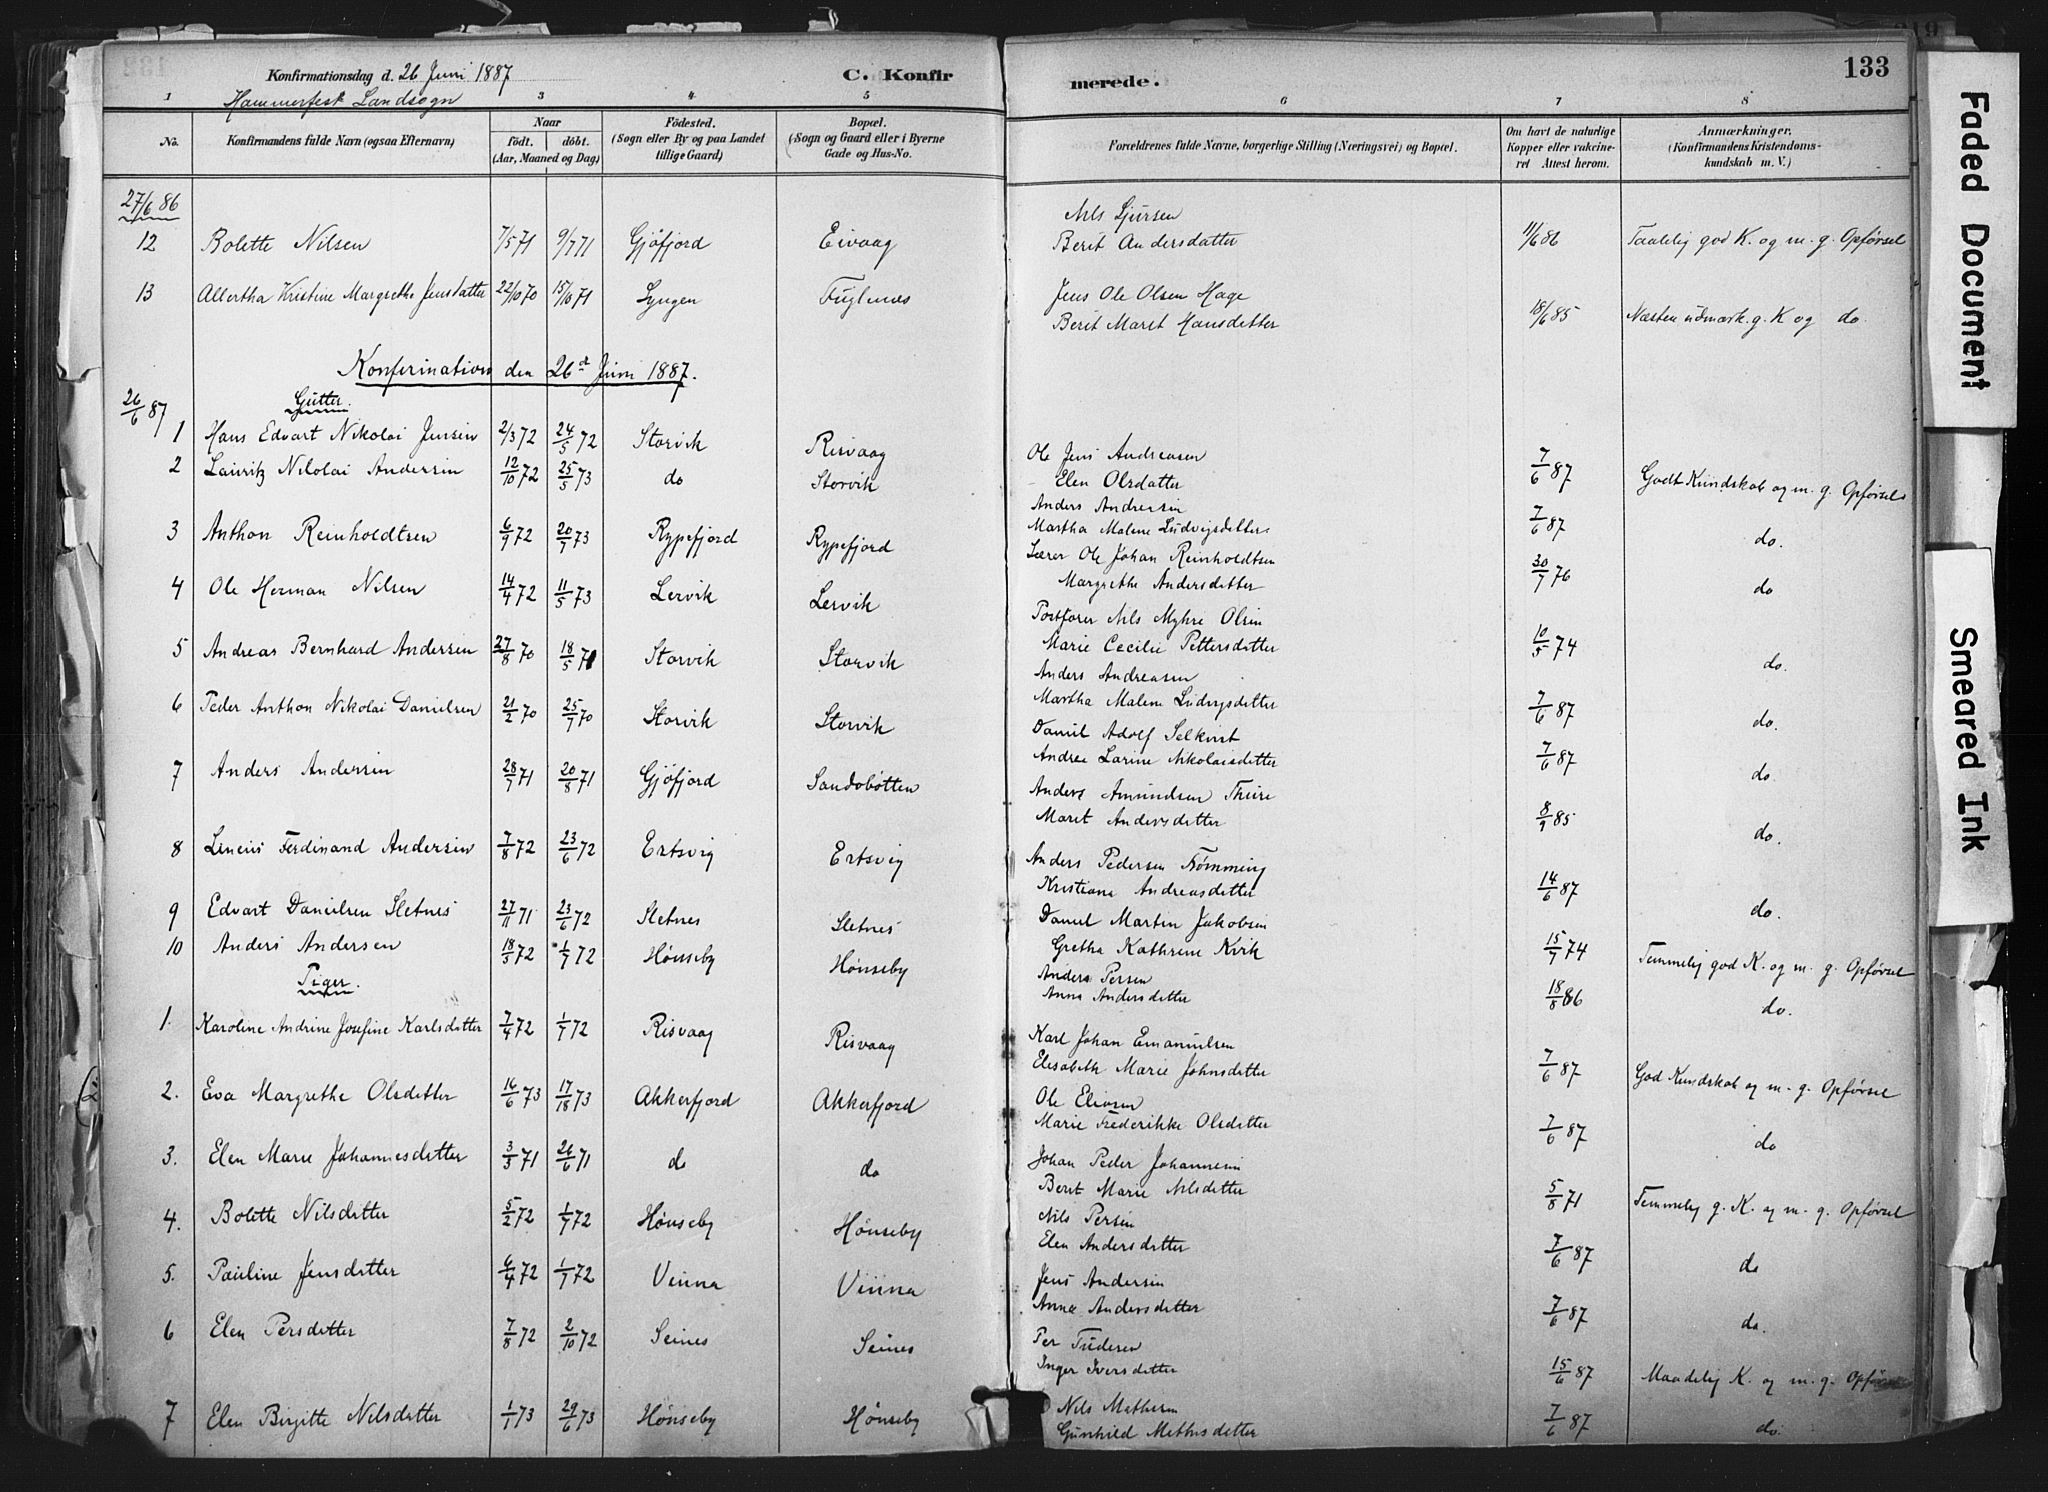 133
Konfirmationsdag d. 26 Juni 1887
C. Konfir merede.
Hammerfest Landsogn
1 3 4 5 6 7 8
No.
Konfirmandens fulde Navn (ogsaa Efternavn)
Naar
födt. döbt.
(Aar, Maaned og Dag)
Födested.
(Sogn eller By og paa Landet
tillige Gaard)
Bopæl.
(Sogn og Gaard eller i Byerne
Gade og Hus-No.
Forældrenes fulde Navne, borgerlige Stilling (Næringsvei) og Bopæl.
Om havt de naturlige
Kopper eller vakcine-
ret Attest herom.
Anmærkninger.
(Konfirmandens Kristendoms-
kundskab m. V.)
27/6 86
12 Bolette Nilsen 7/5 71 9/7 71 Gjöfjord Eivaag Nils Sjursen
Berit Andersdatter 11/6 86 Taalelig god K. og m. g. Opførsel
13 Allertha Kristine Margrethe Jensdatter 22/10 70 15/10 71 Lyngen Fuglenes Jens Ole Olsen Hage
Berit Maret Hansdatter 18/6 85 Næsten udmærk. g. K og do.
Konfirmation den 26d Juni 1887.
26/6 87 Gutter.
1 Hans Edvart Nikolai Jensen 2/3 72 24/5 72 Storvik Risvaag Ole Jens Andreasen
Elen Olsdatter 7/6 87 Godt Kundskab og m. g. Opførsel
2 Lauritz Nikolai Andersen 12/10 72 25/5 73 do Storvik Anders Andreasen
Martha Malene Ludvigsdatter 7/6 87 do.
3 Anthon Reinholdtsen 6/9 72 20/7 73 Rypefjord Rypefjord Lærer Ole Johan Reinholdtsen
Margrethe Andersdatter 30/7 76 do
4 Ole Herman Nilsen 14/4 72 11/5 73 Lervik Lervik Postfører Nils Myhre Olsen
Marie Cecilie Pettersdatter 10/5 74 do.
5 Andreas Bernhard Andersen 27/8 70 18/5 71 Storvik Storvik Anders Andreasen
Martha Malene Ludvigsdatter 7/6 87 do.
6 Peder Anthon Nikolai Danielsen 21/2 70 25/7 70 Storvik Storvik Daniel Adolf Selkvist
Andrea Larine Nikolaisdatter 7/6 87 do.
7 Anders Andersen 28/7 71 20/8 71 Gjöfjord Sandobotten Anders Amundsen Thure
Maret Andersdatter 8/9 85 do.
8 Lineus Ferdinand Andersen 7/8 72 23/6 72 Ertsvig Ertsvig Anders Pedersen Frømming
Kristiana Andreasdatter 14/6 87 do.
9 Edvart Danielsen Sletnes 27/11 71 23/6 72 Sletnes Sletnes Daniel Martin Jakobsen
Gretha Kathrine Kvik 15/7 74 Temmelig god K. og m. g. Opførsel
10 Anders Andersen 18/3 72 1/7 72 Hønseby Hønseby Anders Persen
Anna Andersdatter 18/8 86 do.
Piger.
1. Karoline Andrine Josefine Karlsdatter 7/4 72 1/7 72 Risvaag Risvaag Karl Johan Emanuelsen
Elisabeth Marie Johnsdatter 7/6 87 God Kundskab og m. g. Opførsel
2. Eva Margrethe Olsdatter 16/6 73 17/18 73 Akkerfjord Akkerfjord Ole Eliasen
Marie Frederikke Olsdatter 7/6 87 do
3. Elen Marie Johannesdatter 3/3 71 26/6 71 do do Johan Peder Johannesen
Berit Marie Nilsdatter 5/8 71 Temmelig g. K. og m. g. Opførsel
4. Bolette Nilsdatter 5/2 72 1/7 72 Hønseby Hønseby Nils Persen
Elen Andersdatter 7/6 87 do
5. Pauline Jensdatter 6/4 72 1/7 72 Vinna Vinna Jens Andersen
Anna Andersdatter 7/6 87 do.
6 Elen Persdatter 7/8 72 2/10 72 Seines Seines Per Tudesen
Inger Iversdatter 15/6 87 Maadelig K. og m. g. Opførsel
7 Elen Birgitte Nilsdatter 1/1 73 29/6 73 Hønseby Hønseby Nils Mathisen
Gunhild Mathisdatter 7/6 87 do.
Faded Document
Smeared Ink